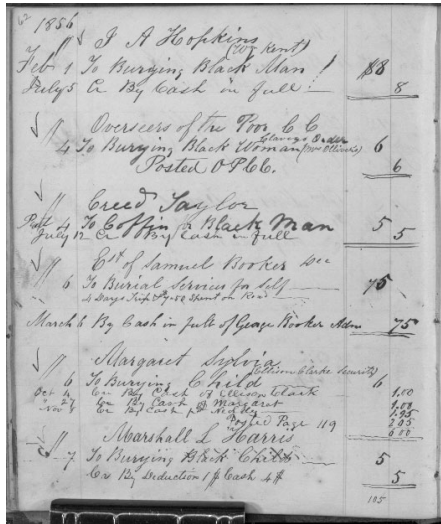 1856
" J A Hopkins
(Wm Kent)
Feb 1 To Burying Black Man $8
July 5 Cr By Cash in full 8
" Overseers of the Poor C C
4 To Burying Black Woman 6
Posted O P C C. 6
" Creed Taylor
4 To Coffin for Black Man 5
July 12 Cr By Cash in full 5
" Est of Samuel Booker Dec
6 To Burial Services for Self 75
4 Days Trip &
March 6 By Cash in full of George Booker Adm 75
" Margaret Sylvia
(Ellison Clarke Security)
6 To Burying Child 6
Oct 4 Cr By Cash of Ellison Clark 1.00
27 Cr By Cash of Margaret 1.00
Nov 8 Cr By Cash 1.95
Posted Page 119 2.05
6.00
" Marshall L Harris
7 To Burying Black Child 5
Cr By Deduction 1$ Cash 4$ 5
105